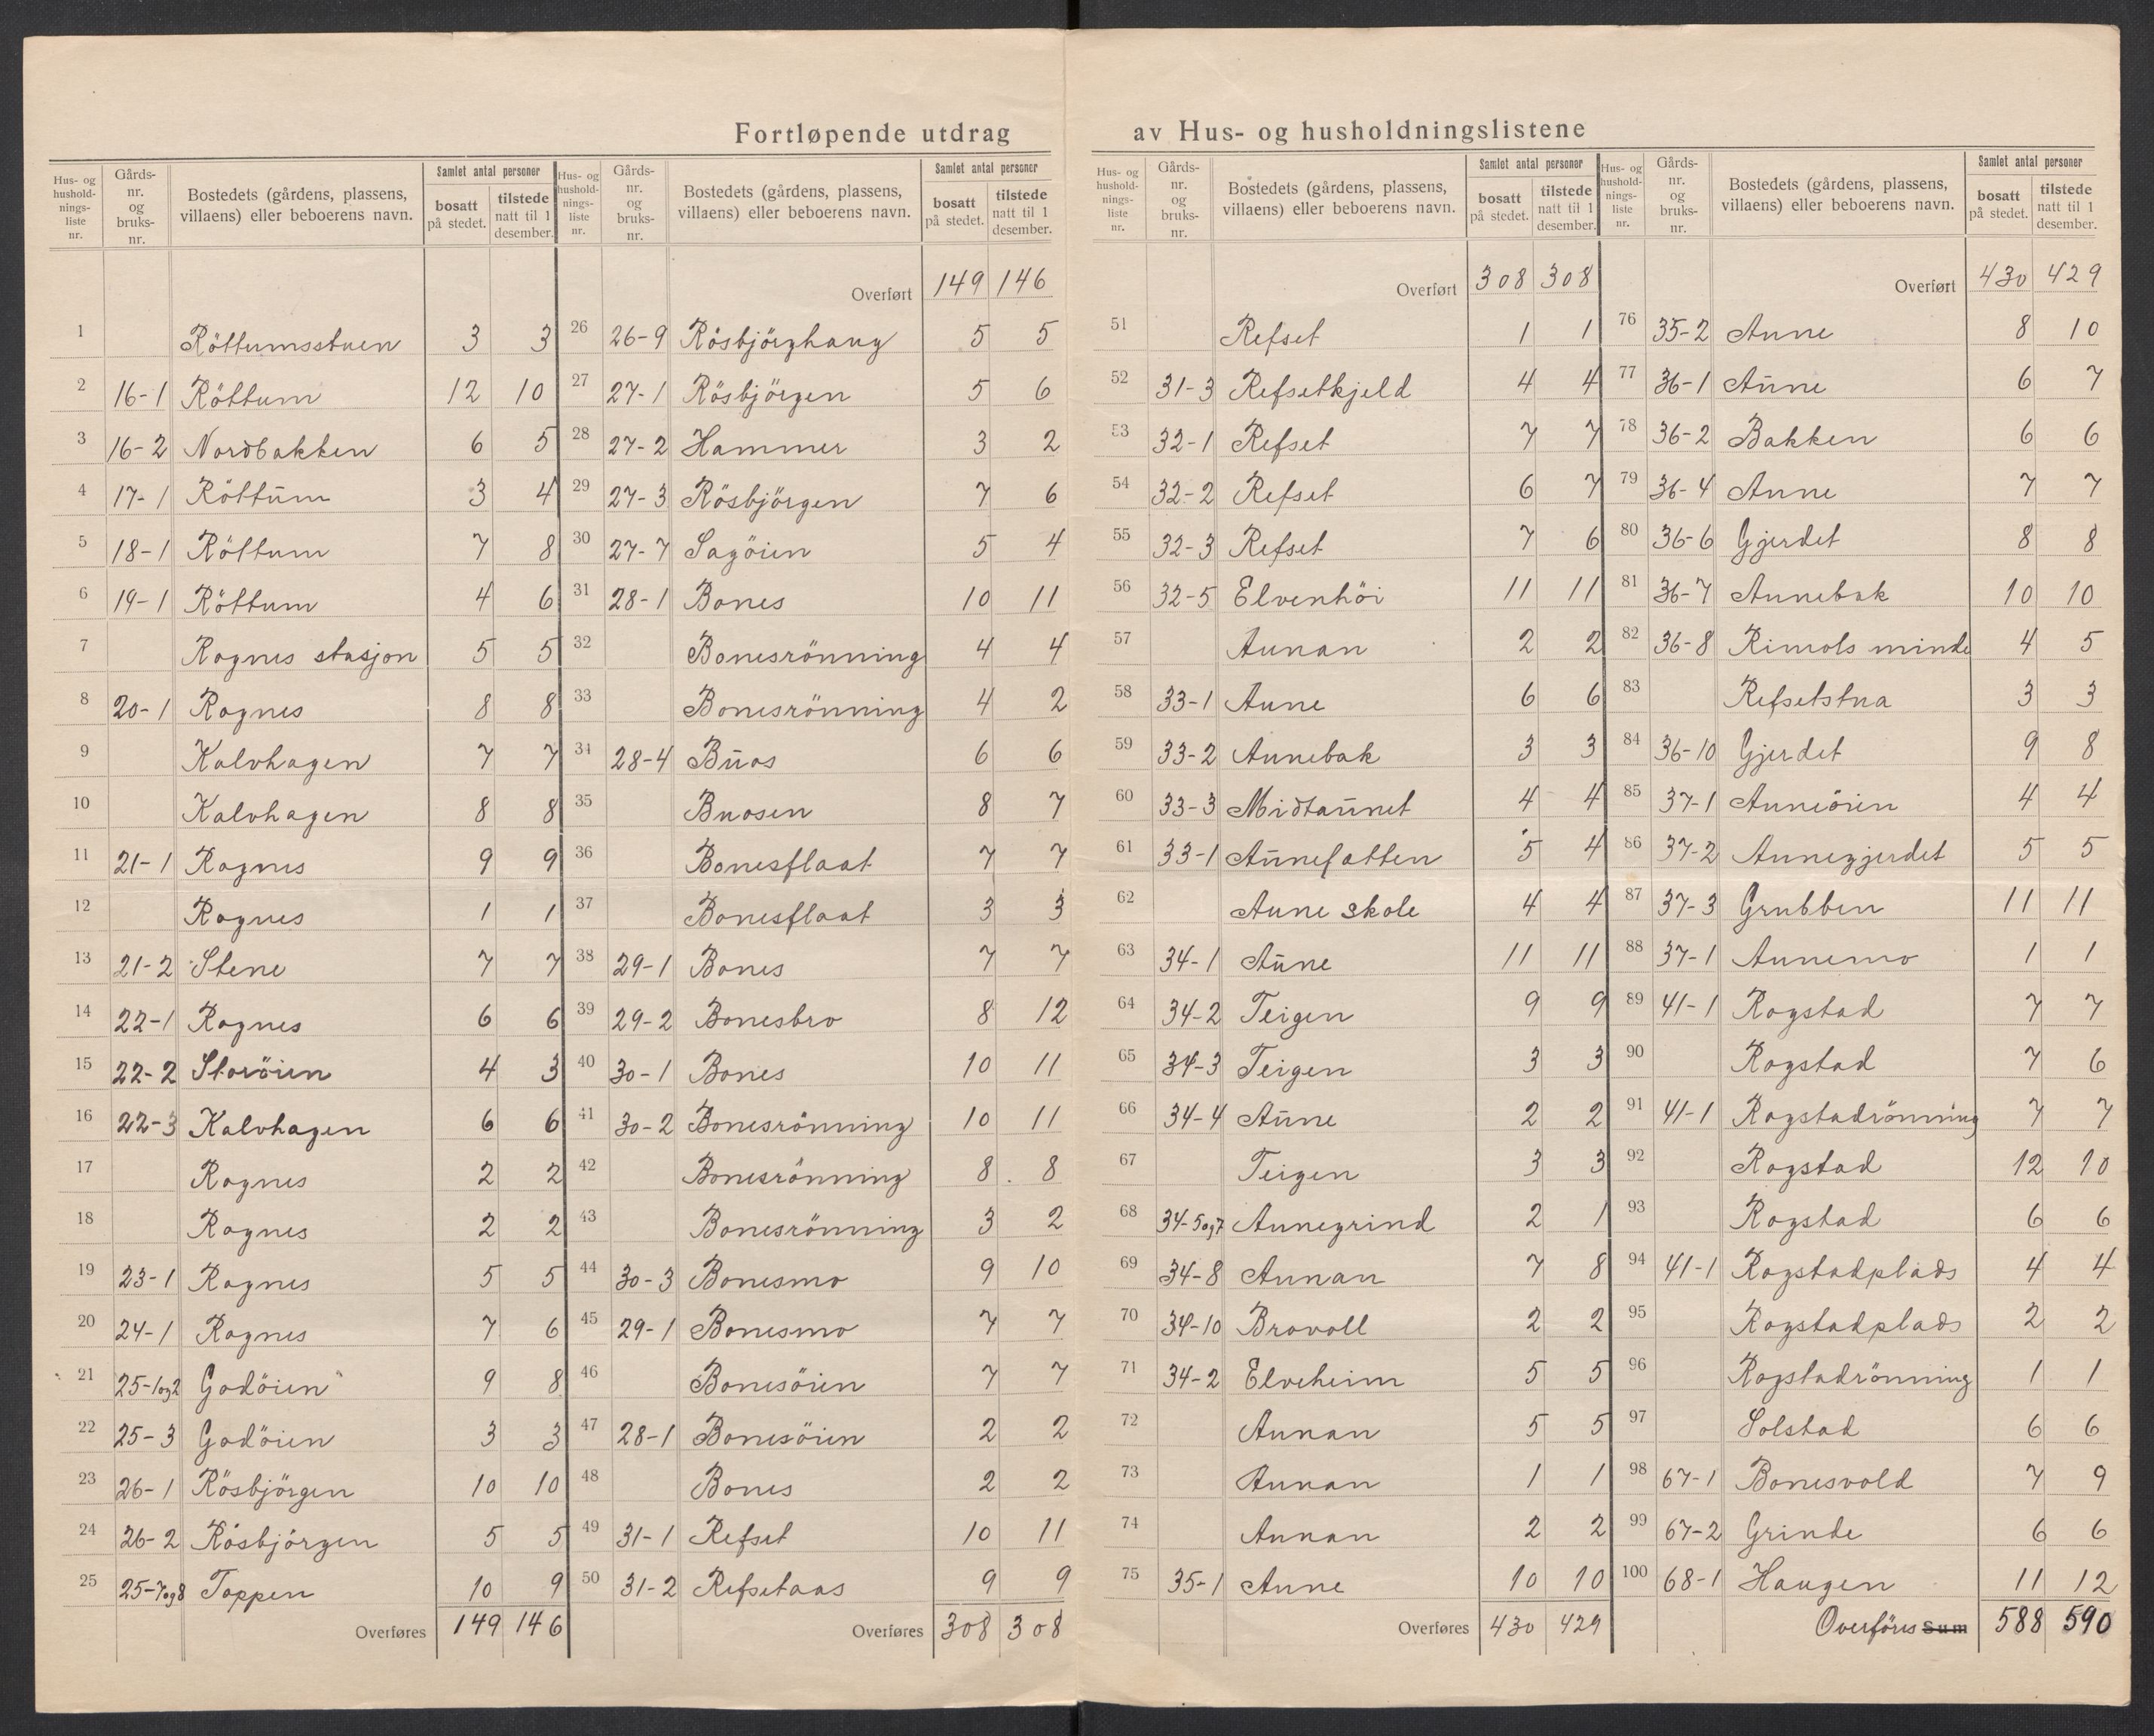 Fortløpende utdrag av Hus- og husholdningslistene
Hus- og hushold-nings-liste nr. | Gårds-nr. og bruks-nr. | Bostedets (gårdens, plassens, villaens) eller beboerens navn. | Samlet antal personer | bosatt på stedet. | tilstede natt til 1 desember.
1 Röttumsstuen 3 3
2 16-1 Röttum 12 10
3 16-2 Nordbakken 6 5
4 17-1 Röttum 3 4
5 18-1 Röttum 7 8
6 19-1 Röttum 4 6
7 Rognes stasjon 5 5
8 20-1 Rognes 8 8
9 Kalvhagen 7 7
10 Kalvhagen 8 8
11 21-1 Rognes 9 9
12 Rognes 1 1
13 21-2 Stene 7 7
14 22-1 Rognes 6 6
15 22-2 Storöien 4 3
16 22-3 Kalvhagen 6 6
17 Rognes 2 2
18 Rognes 2 2
19 23-1 Rognes 5 5
20 24-1 Rognes 7 6
21 25-1og2 Godöien 9 8
22 25-3 Godöien 3 3
23 26-1 Rösbjörgen 10 10
24 26-2 Rösbjörgen 5 5
25 25-7og8 Toppen 10 9
Overføres 149 146
Hus- og hushold-nings-liste nr. | Gårds-nr. og bruks-nr. | Bostedets (gårdens, plassens, villaens) eller beboerens navn. | Samlet antal personer | bosatt på stedet. | tilstede natt til 1 desember.
Overført 149 146
26 26-9 Rösbjörghaug 5 5
27 27-1 Rösbjörgen 5 6
28 27-2 Hammer 3 2
29 27-3 Rösbjörgen 7 6
30 27-7 Sagöien 5 4
31 28-1 Bones 10 11
32 Bonesrönning 4 4
33 Bonesrönning 4 2
34 28-4 Buos 6 6
35 Buosen 8 7
36 Bonesflaat 7 7
37 Bonesflaat 3 3
38 29-1 Bones 7 7
39 29-2 Bonesbro 8 12
40 30-1 Bones 10 11
41 30-2 Bonesrönning 10 11
42 Bonesrönning 8 8
43 Bonesrönning 3 2
44 30-3 Bonesmo 9 10
45 29-1 Bonesmo 7 7
46 Bonesöien 7 7
47 28-1 Bonesöien 2 2
48 Bones 2 2
49 31-1 Refset 10 11
50 31-2 Refsetaas 9 9
Overføres 308 308
Hus- og hushold-nings-liste nr. | Gårds-nr. og bruks-nr. | Bostedets (gårdens, plassens, villaens) eller beboerens navn. | Samlet antal personer | bosatt på stedet. | tilstede natt til 1 desember.
Overført 308 308
51 Refset 1 1
52 31-3 Refsetkjeld 4 4
53 32-1 Refset 7 7
54 32-2 Refset 6 7
55 32-3 Refset 7 6
56 32-5 Elvenhöi 11 11
57 Aunan 2 2
58 33-1 Aune 6 6
59 33-2 Aunebak 3 3
60 33-3 Midtaunet 4 4
61 33-1 Aunefatten 5 4
62 Aune skole 4 4
63 34-1 Aune 11 11
64 34-2 Teigen 9 9
65 34-3 Teigen 3 3
66 34-4 Aune 2 2
67 Teigen 3 3
68 34-5og7 Aunegrind 2 1
69 34-8 Aunan 7 8
70 34-10 Brovoll 2 2
71 34-2 Elveheim 5 5
72 Aunan 5 5
73 Aunan 1 1
74 Aunan 2 2
75 35-1 Aune 10 10
Overføres 430 429
Hus- og hushold-nings-liste nr. | Gårds-nr. og bruks-nr. | Bostedets (gårdens, plassens, villaens) eller beboerens navn. | Samlet antal personer | bosatt på stedet. | tilstede natt til 1 desember.
Overført 430 429
76 35-2 Aune 8 10
77 36-1 Aune 6 7
78 36-2 Bakken 6 6
79 36-4 Aune 7 7
80 36-6 Gjerdet 8 8
81 36-7 Aunebak 10 10
82 36-8 Rimols minde 4 5
83 Refsetstua 3 3
84 36-10 Gjerdet 9 8
85 37-1 Auneöien 4 4
86 37-2 Aunegjerdet 5 5
87 37-3 Grubben 11 11
88 37-1 Aunemo 1 1
89 41-1 Rogstad 7 7
90 Rogstad 7 6
91 41-1 Rogstadrönning 7 7
92 Rogstad 12 10
93 Rogstad 6 6
94 41-1 Rogstadplads 4 4
95 Rogstadplads 2 2
96 Rogstadrönning 1 1
97 Solstad 6 6
98 67-1 Bonesvold 7 9
99 67-2 Grinde 6 6
100 68-1 Haugen 11 12
Overföres Sum 588 590